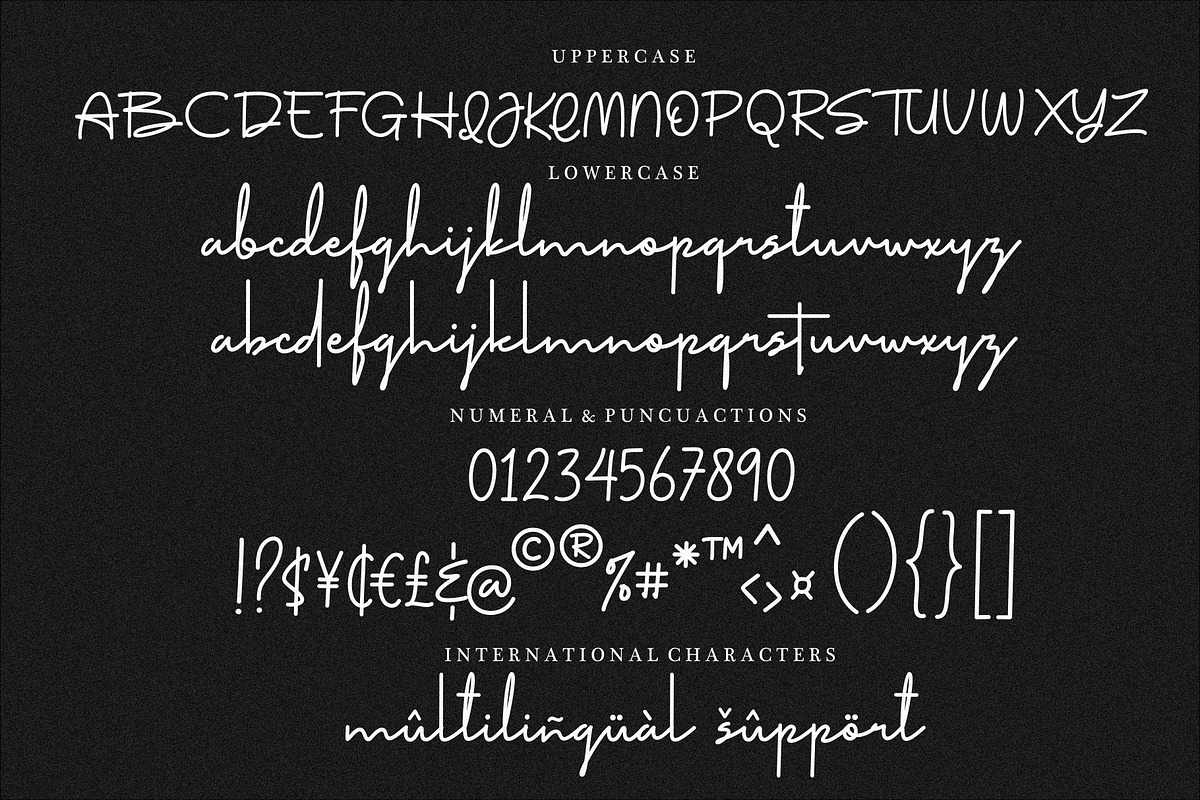 UPPERCASE
ABCDEFGHIJKLMNOPQRSTUVWXYZ
LOWERCASE
abcdefghijklmnopqrstuvwxyz
abcdefghijklmnopqrstuvwxyz
NUMERAL & PUNCUACTIONS
01234567890
!?$¥₵€£&@©®%#*™^<>¤(){}[]
INTERNATIONAL CHARACTERS
mûltiliñgüàl šûppört